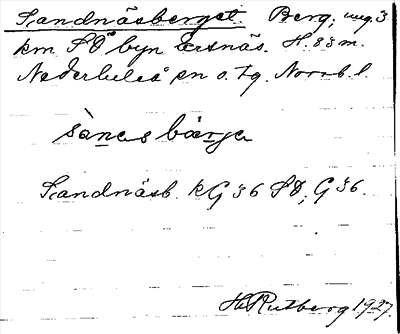 Sandnäsberget. Berg, ung. 3
km SO byn Ersnäs. H. 83 m.
Nederluleå sn o. tg. Norrb. l.
sànesbärje
Sandnäsb. kG 36 SO; G 36.
H. Rutberg 1927.